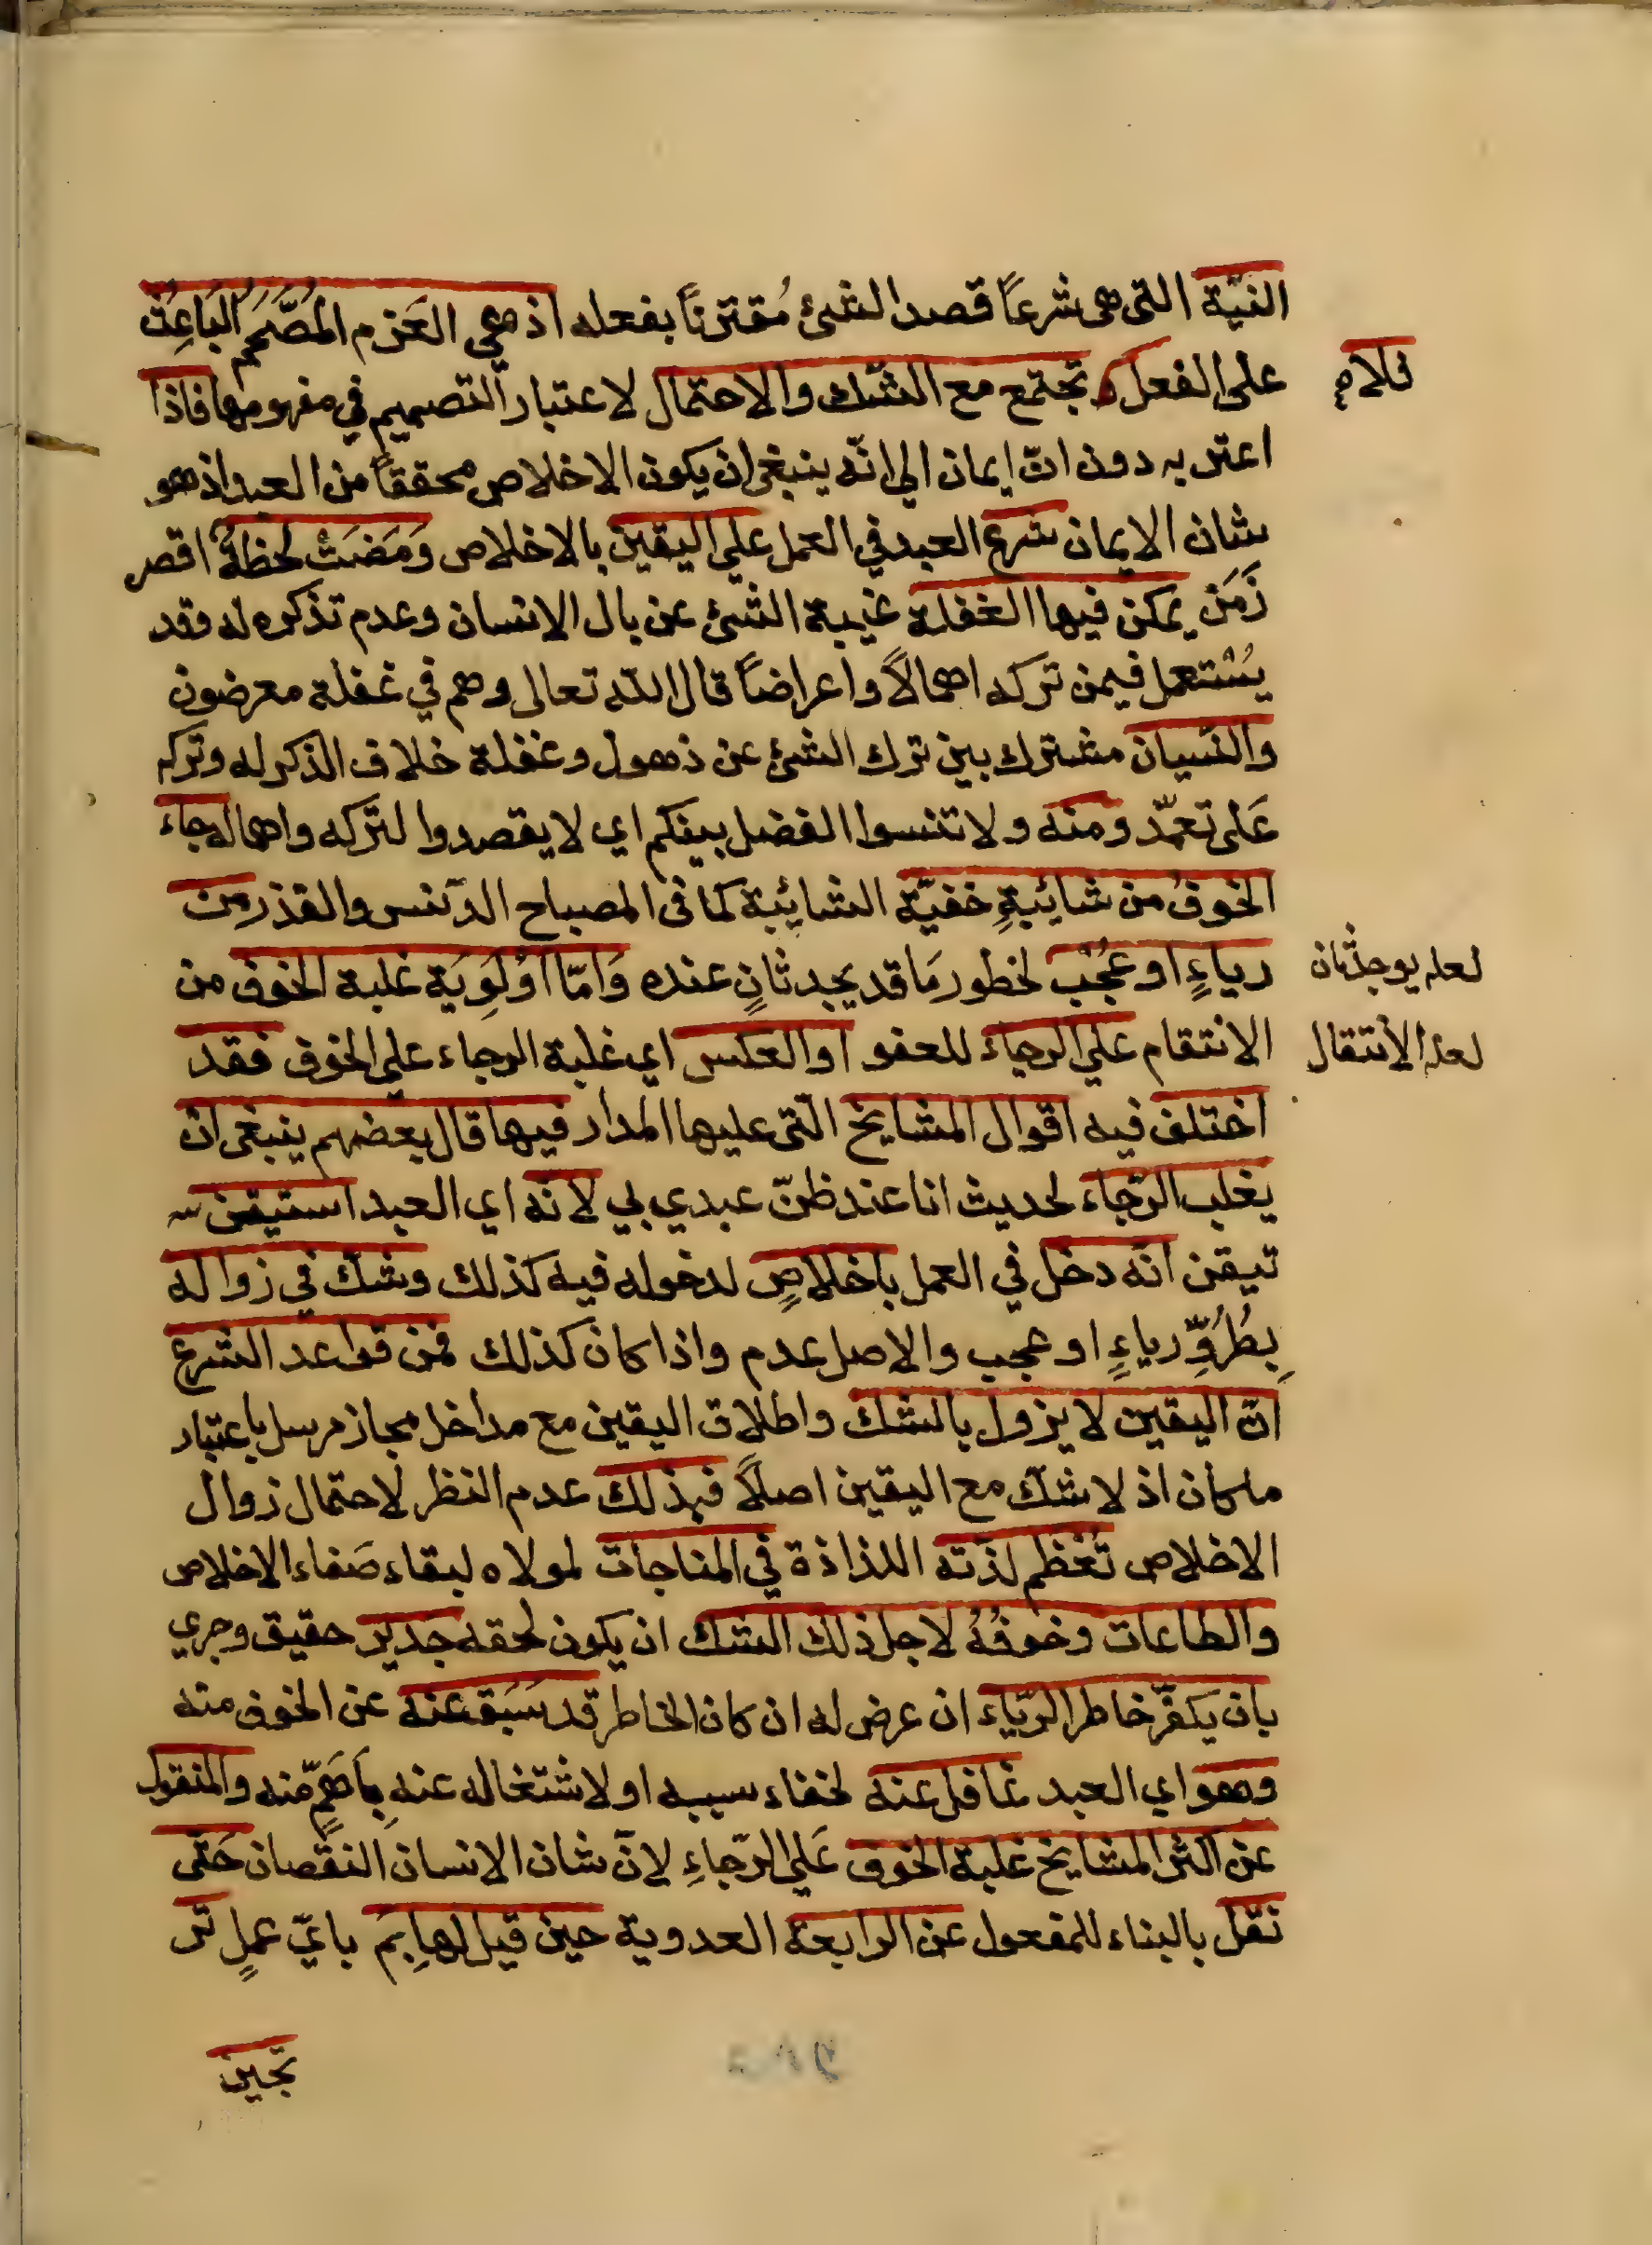 النيّة التى هى شرعاً قصد الشئ مُقترناً بفعله اذ هي العَزم المُصَّمَمُ البَاعِث
على الفعل و تجتمع مع الشّك والاحتمال لاعتبار التصميم في مفهومها فاذا
فلا م
اعتن به دون انّ ايمان الي انّه ينبغى ان يكون الاخلاص محققاً من العبد اذ هو
شان الايمان شرع العبد في العمل علي اليقين بالاخلاص وَمَضَتْ لحظةٌ اقصر
زَمَن يمكن فيها الغفلة غيبة الشئ عن بال الانسان وعدم تذكره له وقد
يُسْتعمل فيمن تركه اهمالاً واعراضاً قال الله تعالى وهم في غفلة معرضون
والنسيان مشترك بين ترك الشئ عن ذهول وغفلة خلاف الذكر له وتركه
عَلى تعمّد ومنه ولا تنسوا الفضل بينكم اي لا يقصدوا لتركه واهماله جاء
الخوفُ من شائبةٍ خفيّة الشايبة كما فى المصباح الدّنس والقذر من
رياءٍ او عُجْب لخطور مَا قد يجد ثانٍ عنده وَامّا اوْلَوِيَة غلبة الخوف من
لعله يوجد ثان
الانتقام علي الرجاء للعفو او العكس اي غلبة الرجاء علي الخوف فقد
لعله الأنتقال
اختلف فيه اقوال المشايخ الّتى عليها المدار فيها قال بعضهم ينبغى ان
يغلب الرّجاء لحديث انا عند ظنّ عبدي بي لانّه اي العبد استيقن
تيقن انّه دخل في العمل باخلاصٍ لدخوله فيه كذلك وشك في زواله
بِطُرُوِّ رياءٍ او عجب والاصل عدم واذا كان كذلك فمن قواعد الشرع
انّ اليقين لا يزول بالشك واطلاق اليقين مع مداخل مجاز مرسل باعتبار
ما كان اذ لا شكّ مع اليقين اصلاً فبذلك عدم النظر لاحتمال زوال
الاخلاص تَعْظم لذّته اللذاذة في المناجات لمولاه لبقاء صَفاء الاخلاص
والطاعات وخوفُهُ لاجل ذلك الشك ان يكون لحقه جدير حقيق وجري
بان يكفّر خاطر الرّياء ان عرض له ان كان الخاطر قد سَبَقَ عنه عن الخوف منه
وهو اي العبد غافل عنه لخفاء سببه او لاشتغاله عنه بِاَهَمٍّ منه والمنقول
عن اكثر المشايخ غلبة الخوف عَلي الرّجاءِ لانّ شان الانسان النقصان حَتى
نقل بالبناء للمفعول عن الرابعة العدوية حين قيل لها بِمَ باىّ عملٍ تر
تجين